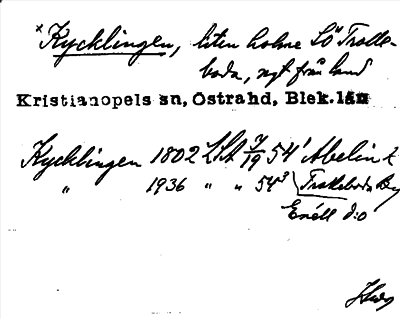 *Kycklingen, liten holme SÖ Trolle-
boda, nyt från land
Kristianopels sn, Östrahd, Blek.län
Kycklingen 1802 LSA 7/19 54¹ Abelin Z
" 1936 " " 54³ Trolleboda
Enéll d:o